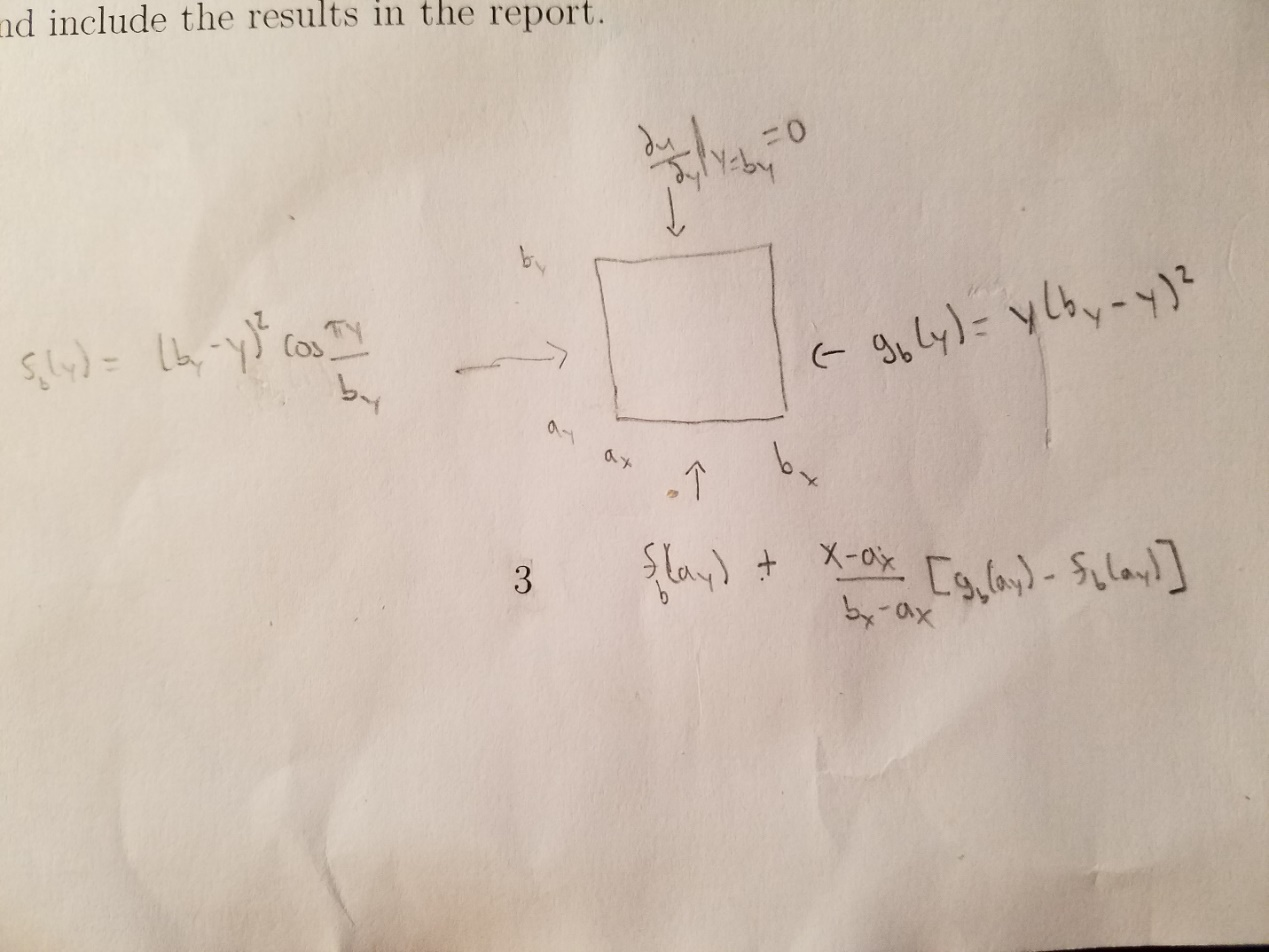 nd include the results in the report.
∂u/∂y|y=by =0
↓
by
fb(y) = (by-y)² cos πy/by → ← gb(y) = y(by-y)²
ay
ax bx
↑
3 fb(ay) + x-ax/bx-ax [gb(ay) - fb(ay)]